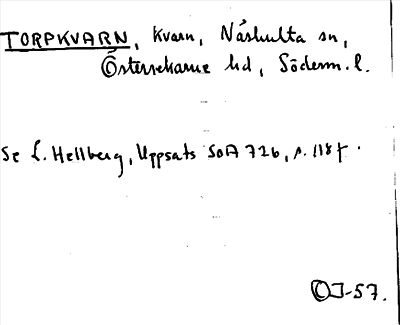 TORPKVARN, Kvarn, Näshulta sn,
Österrekarne hd, Söderm. l.
Se L. Hellberg, Uppsats SOA 726, s. 118f.
OJ-57.